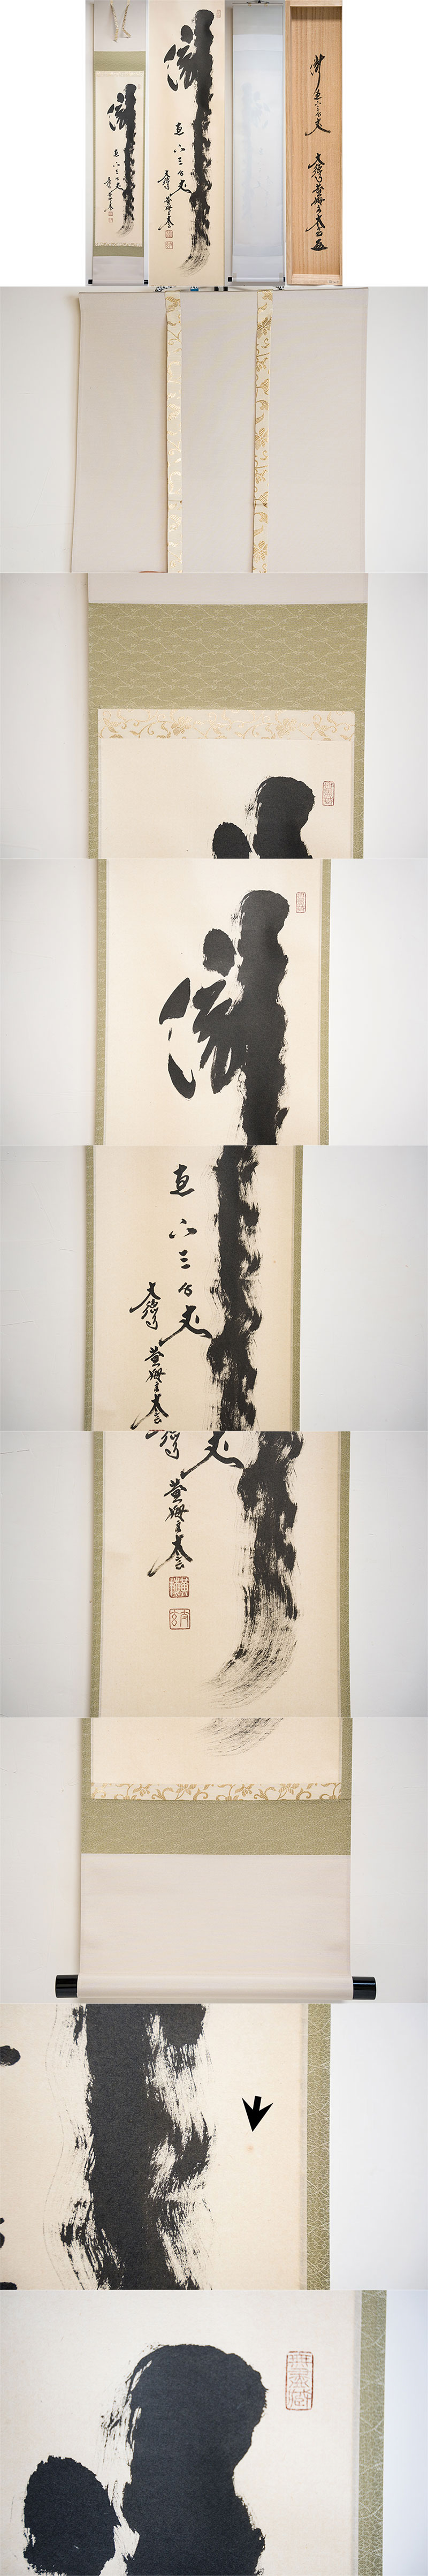 瀧
直下三千丈
大徳黄梅主太玄
瀧
直下三千丈
大徳黄梅主太玄